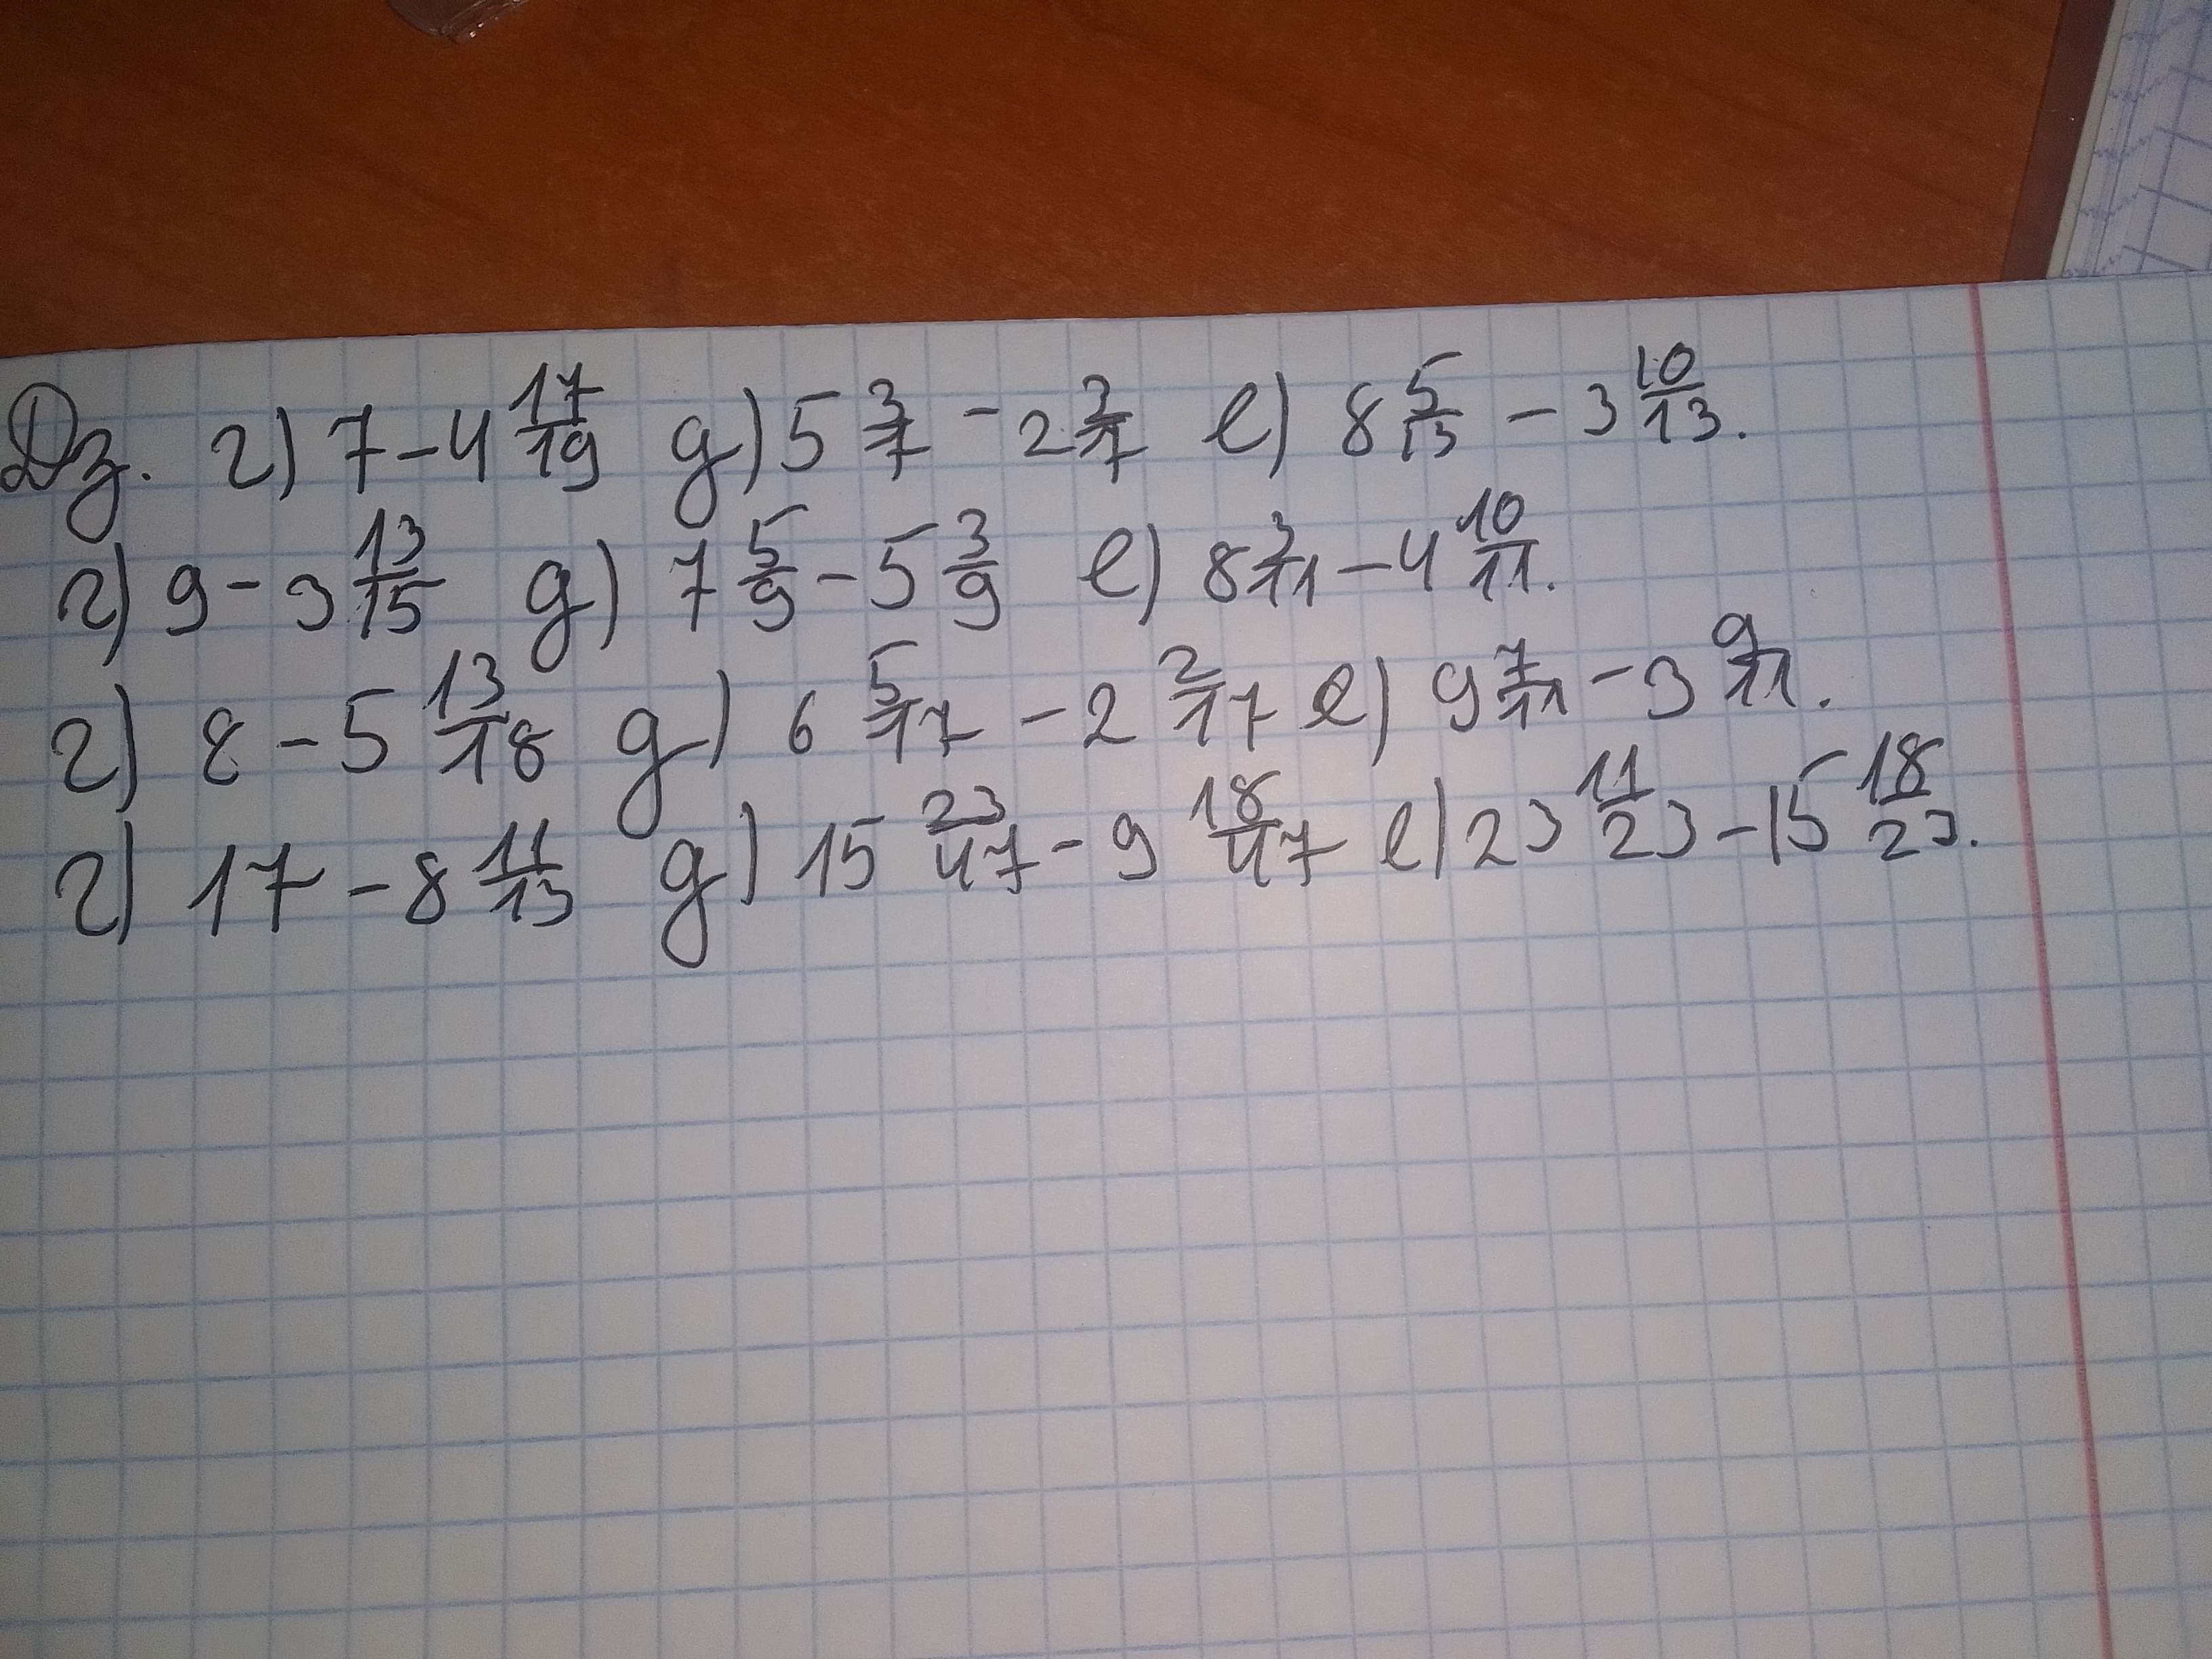 Дз. г) 7 - 4 17/19 д) 5 3/7 - 2 2/7 е) 8 5/13 - 3 10/13.
г) 9 - 3 13/15 д) 7 5/9 - 5 3/9 е) 8 3/11 - 4 10/11.
г) 8 - 5 13/18 д) 6 5/17 - 2 2/17 е) 9 7/11 - 3 9/11.
г) 17 - 8 11/13 д) 15 23/47 - 9 18/47 е) 23 11/23 - 15 18/23.